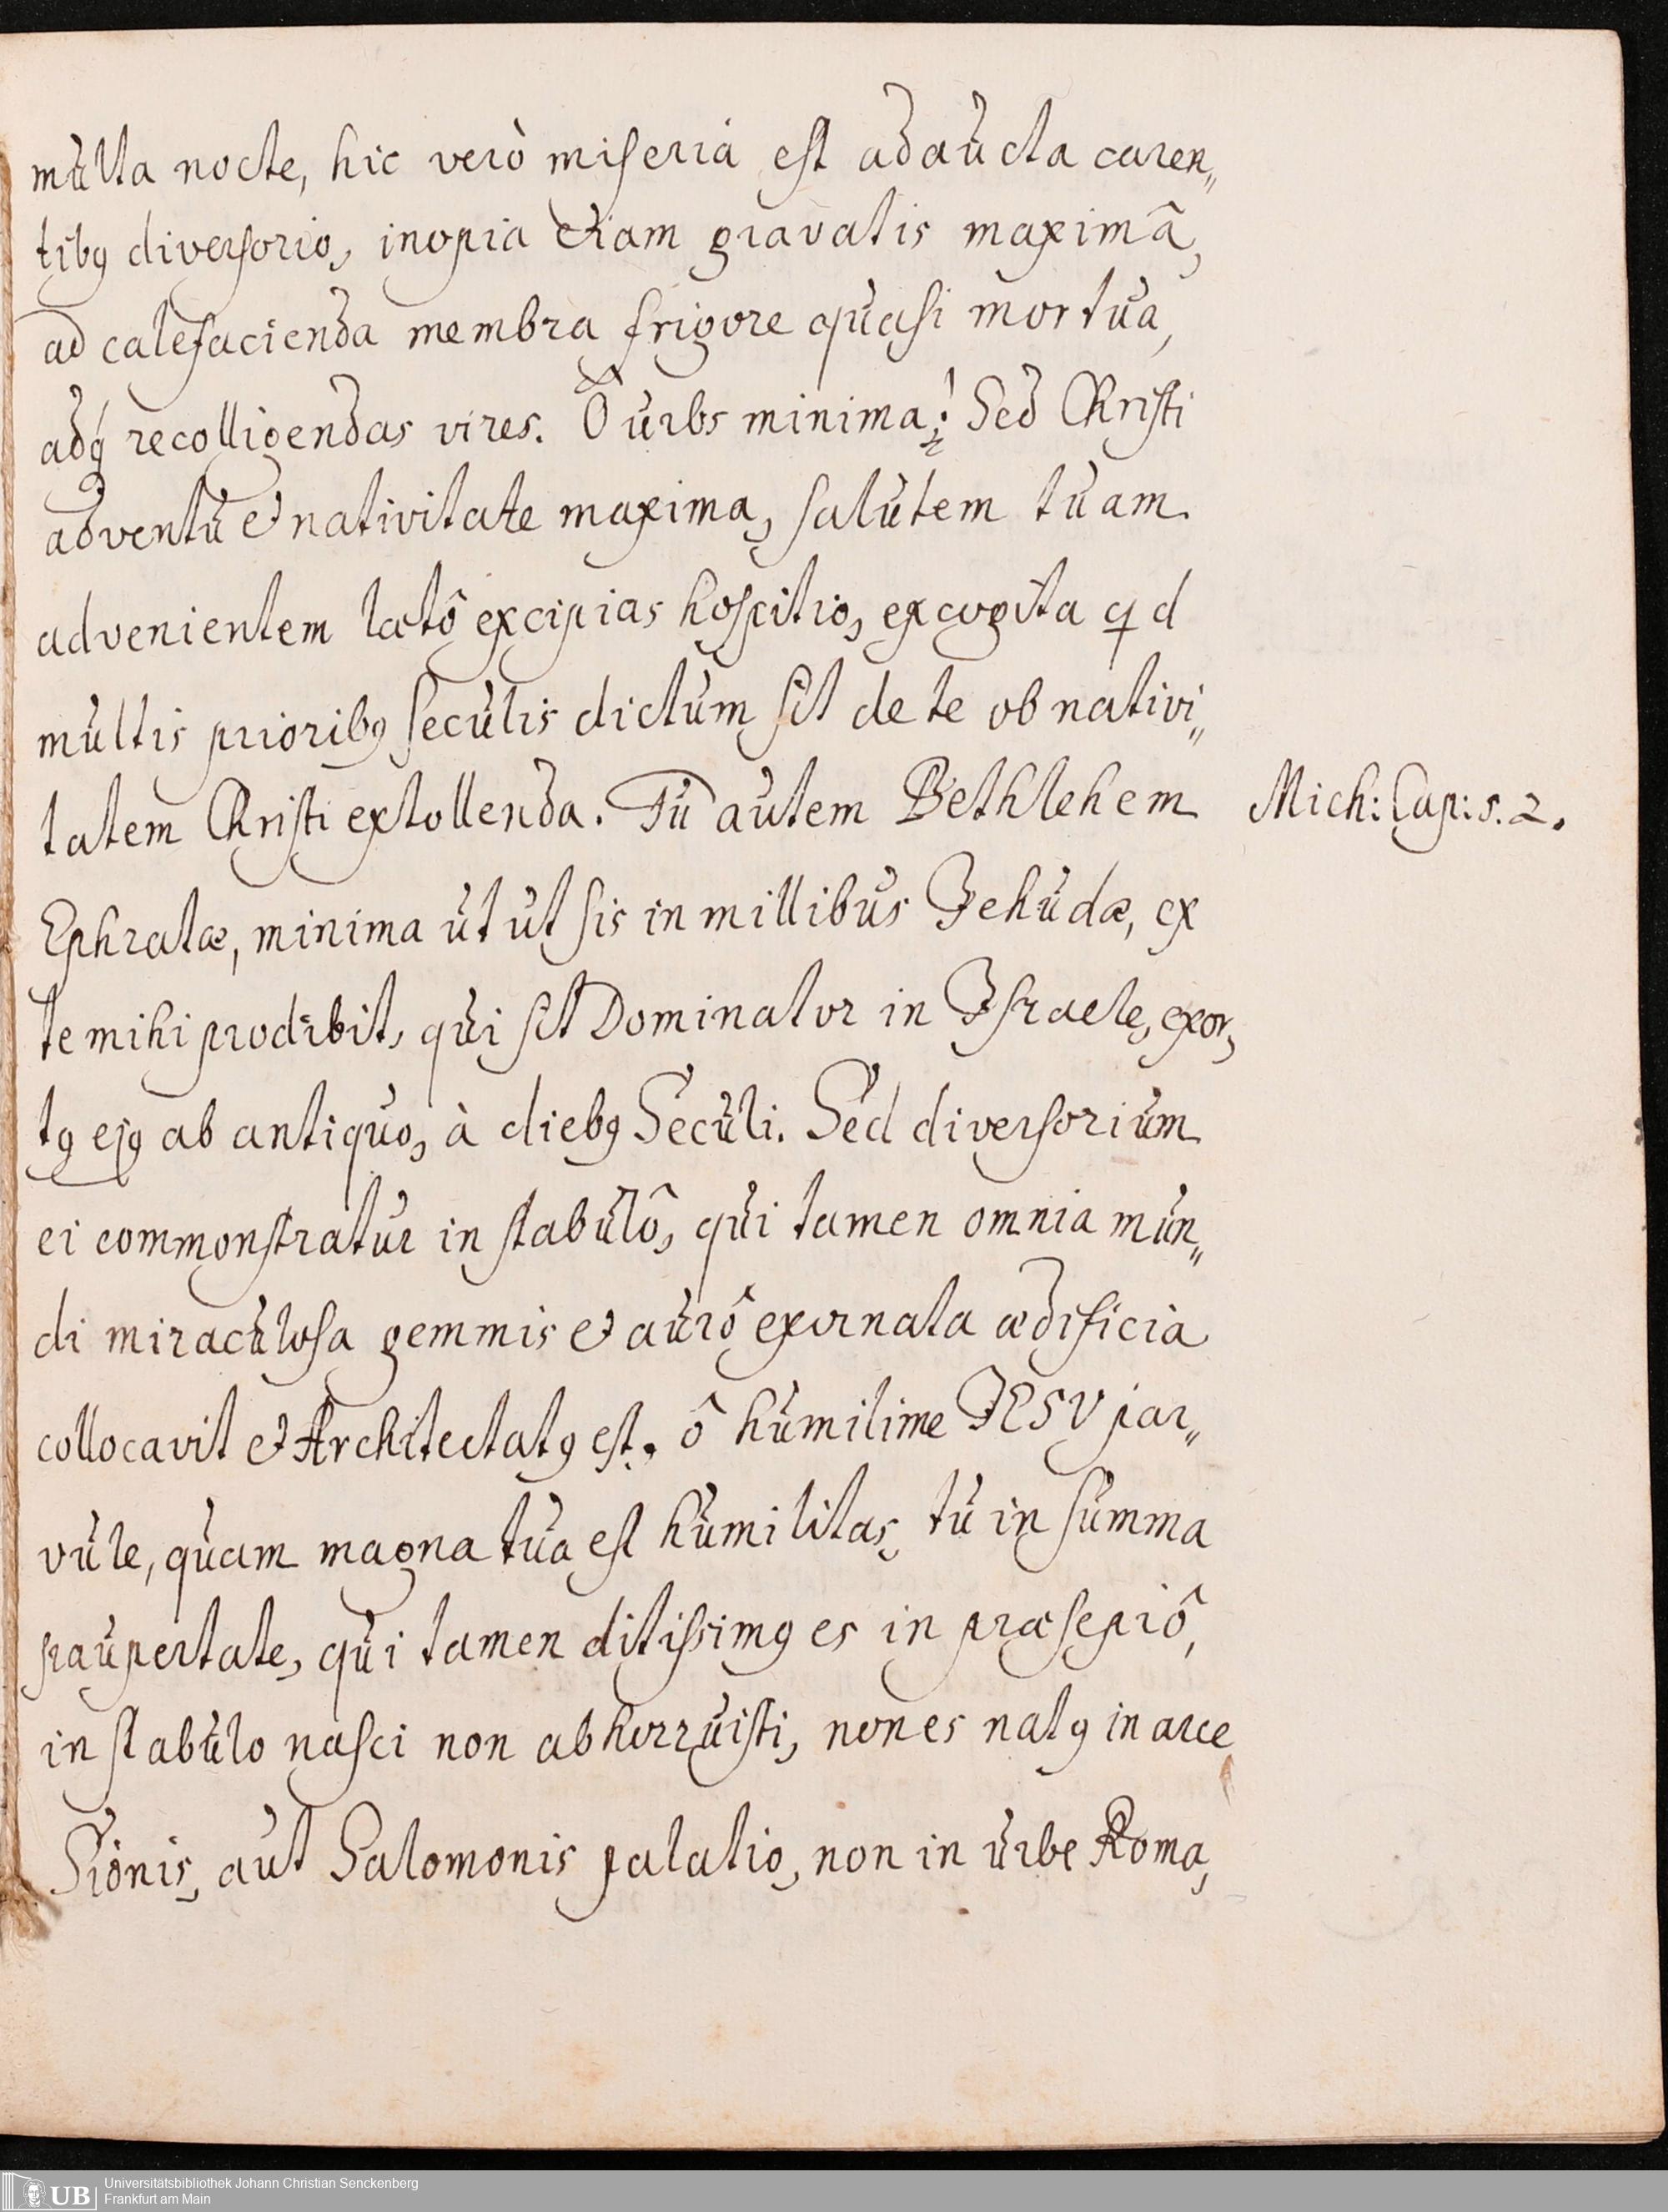 multa nocte, hic verò miseriâ est adaucta caren„
tibꝰ diversorio, inopia etiam gravatis maximâ,
ad calefacienda membra frigore quasi mortua,
adq́ recolligendas vires. Ô urbs minima! Sed Christi
adventu et nativitate maxima, salutem tuam
advenientem lætô excipias hospitio, excogita qd
multis prioribꝰ seculis dictum sit de te ob nativi„
tatem Christi extollenda. Tu autem Bethlehem
Mich: Cap: 5. 2.
Ephratæ, minima ut ut sis in millibus Jehudæ, ex
te mihi prodibit, qui sit Dominator in Israele, exor„
tꝰ ejꝰ ab antiquo, à diebꝰ Seculi. Sed diversorium
ei commonstratur in stabulô, qui tamen omnia mun„
di miraculosa gemmis et aurô exornata ædificia
collocavit et Architectatꝰ est. ô humilime JESU par„
vule, quam magna tua est humilitas, tu in summa
paupertate, qui tamen ditissimꝰ es in præsepiô,
in stabulo nasci non abhorruisti, non es natꝰ in arce
Sionis, aut Salomonis palatio, non in urbe Roma,
UB Universitätsbibliothek Johann Christian Senckenberg
Frankfurt am Main